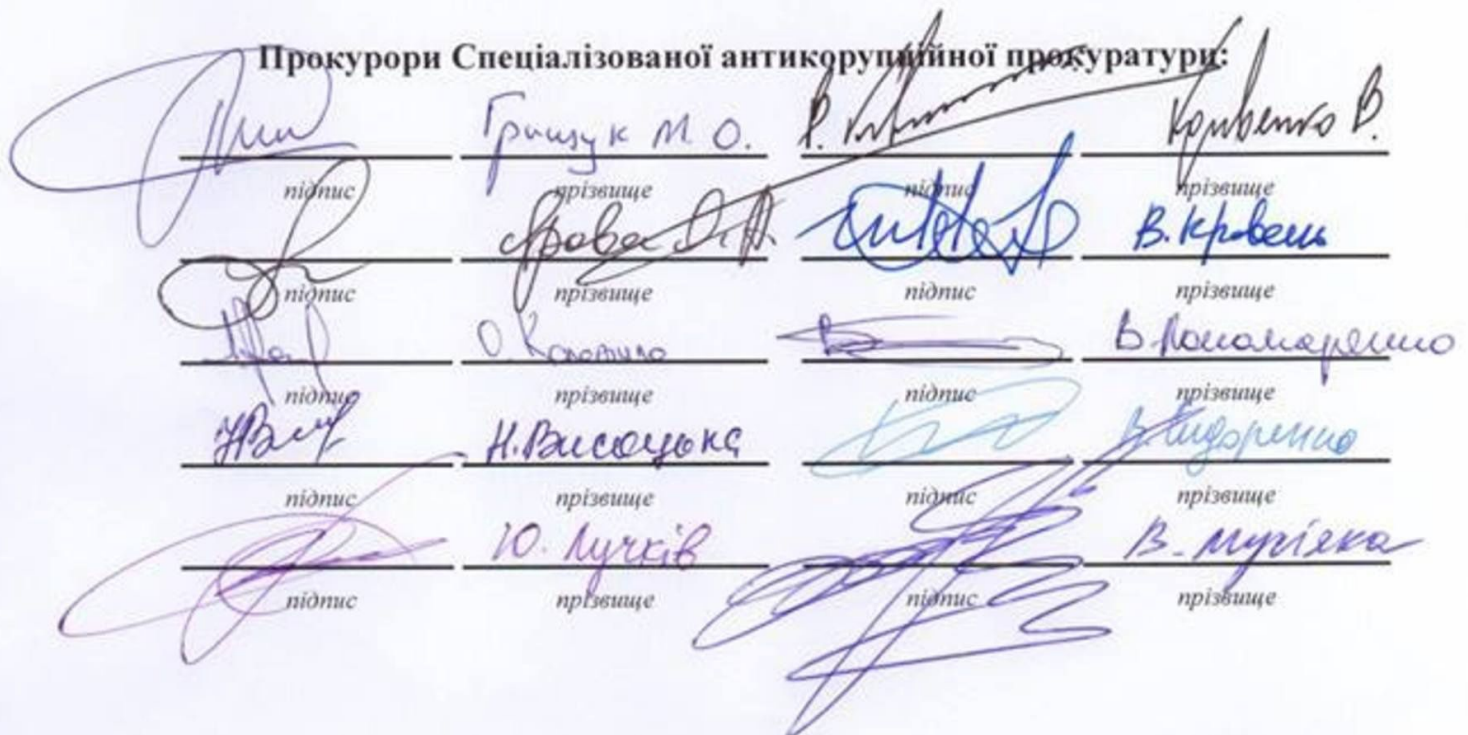 Прокурори Спеціалізованої антикорупційної прокуратури:
Грищук М. О. Кривенко В.
підпис прізвище підпис прізвище
В. Кравець
підпис прізвище підпис прізвище
О. В. Пономаренко
підпис прізвище підпис прізвище
Н. Висоцька В. Сидоренко
підпис прізвище підпис прізвище
Ю. Лучків В. Мусіяка
підпис прізвище підпис прізвище